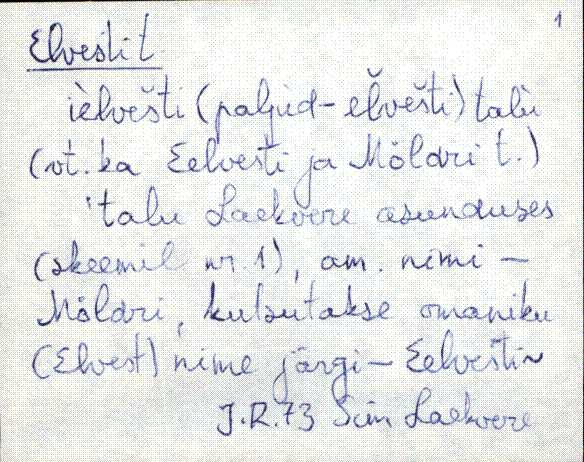 1
Elvesti t.
ìelvešti (paljud – elvešti) talù
(vt. ka Eelvesti ja Möldri t.)
'talu Laekvere asunduses
(skeemil nr. 1), am. nimi –
Möldri, kutsutakse omaniku
(Elvest) nime järgi – Eelvesti~
J.R. 73 Sim Laekvere